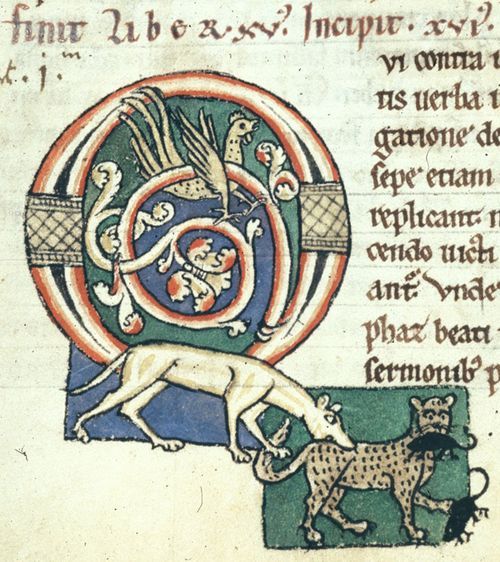 finit Liber · xv.' Incipit · xvi.'
vi contra
tis uerba
gatione de
sepe etiam
replicant
cendo uicti
ant. Vnde
phaz beati
sermonib; p